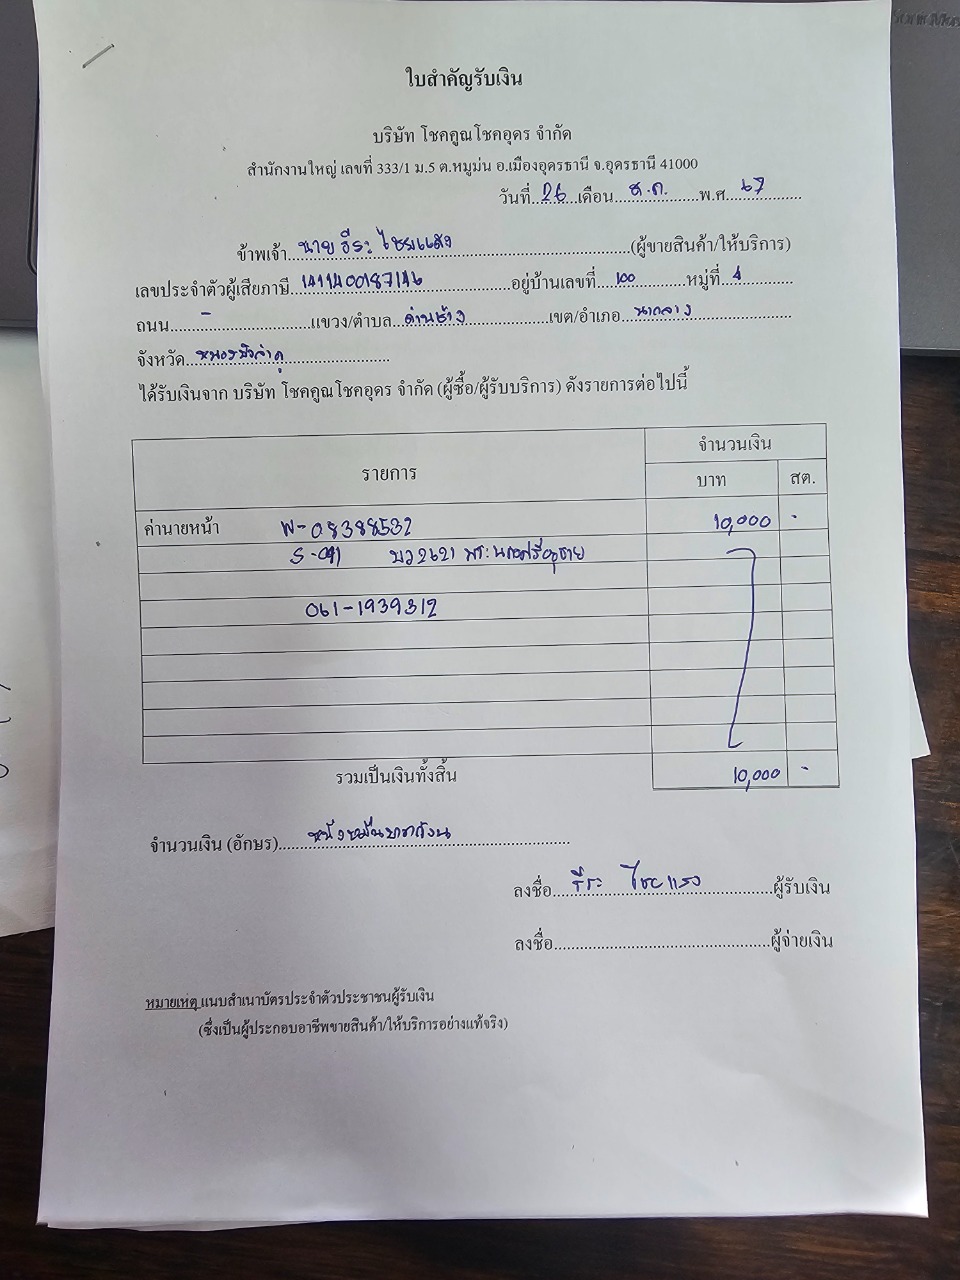 ใบสำคัญรับเงิน
บริษัท โชคคูณโชคอุดร จำกัด
สำนักงานใหญ่ เลขที่ 333/1 ม.5 ต.หมูม่น อ.เมืองอุดรธานี จ.อุดรธานี 41000
วันที่ 26 เดือน ส.ค. พ.ศ. 67
ข้าพเจ้า นาย ธีระ ไชยแสง (ผู้ขายสินค้า/ให้บริการ)
เลขประจำตัวผู้เสียภาษี 1411400187146 อยู่บ้านเลขที่ 100 หมู่ที่ 4
ถนน - แขวง/ตำบล ด่านช้าง เขต/อำเภอ นากลาง
จังหวัด หนองบัวลำภู
ได้รับเงินจาก บริษัท โชคคูณโชคอุดร จำกัด (ผู้ซื้อ/ผู้รับบริการ) ดังรายการต่อไปนี้
รายการ จำนวนเงิน
บาท สต.
ค่านายหน้า W-08388532 10,000 -
S-041 บว2621 พระนครศรีอยุธยา
061-1939312
รวมเป็นเงินทั้งสิ้น 10,000 -
จำนวนเงิน (อักษร) หนึ่งหมื่นบาทถ้วน
ลงชื่อ ธีระ ไชยแสง ผู้รับเงิน
ลงชื่อ ผู้จ่ายเงิน
หมายเหตุ แนบสำเนาบัตรประจำตัวประชาชนผู้รับเงิน
(ซึ่งเป็นผู้ประกอบอาชีพขายสินค้า/ให้บริการอย่างแท้จริง)